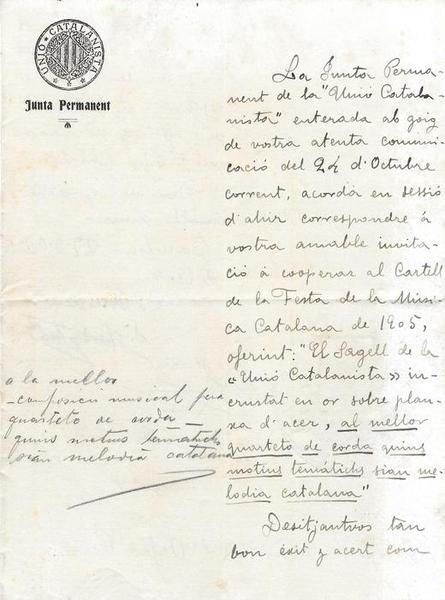 UNIÓ CATALANISTA
Junta Permanent
La Junta Perma-
nent de la "Unió Catala-
nista" enterada ab goig
de vostra atenta comuni-
cació del 24 d'Octubre
corrent, acordá en sessió
d'ahir correspondre á
vostra amable invita-
ció á cooperar al Cartell
de la Festa de la Mús-
ica Catalana de 1905,
oferint: "El Sagell de la
«Unió Catalanista» in-
crustat en or sobre plan-
xa d'acer, al mellor
quarteto de corda quins
motius temátichs sian me-
lodia catalana"
Desitjantvos tan
bon éxit y acert com
a la mellor
composició musical pera
quarteto de corda
quins motius temátichs
sian melodia catalana